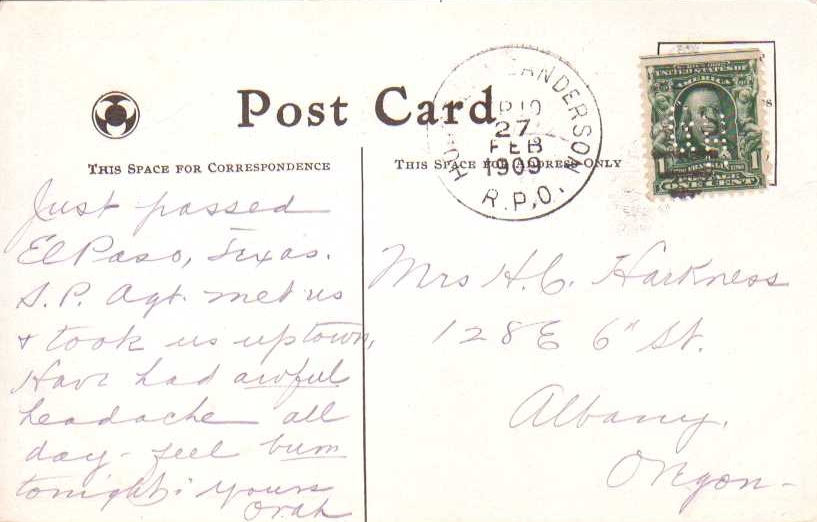 Post Card
THIS SPACE FOR CORRESPONDENCE
THIS SPACE FOR ADDRESS ONLY
SANDERSON
R.P.O.
27
FEB
1909
UNITED STATES OF
AMERICA
1 1
ONE CENT
Just passed
El Paso, Texas.
S. P. Agt. met us
& took us uptown,
Have had awful
headache all
day - feel bum
tonight. Yours
Orah
Mrs H. C. Harkness
128 E 6" St.
Albany,
Oregon -